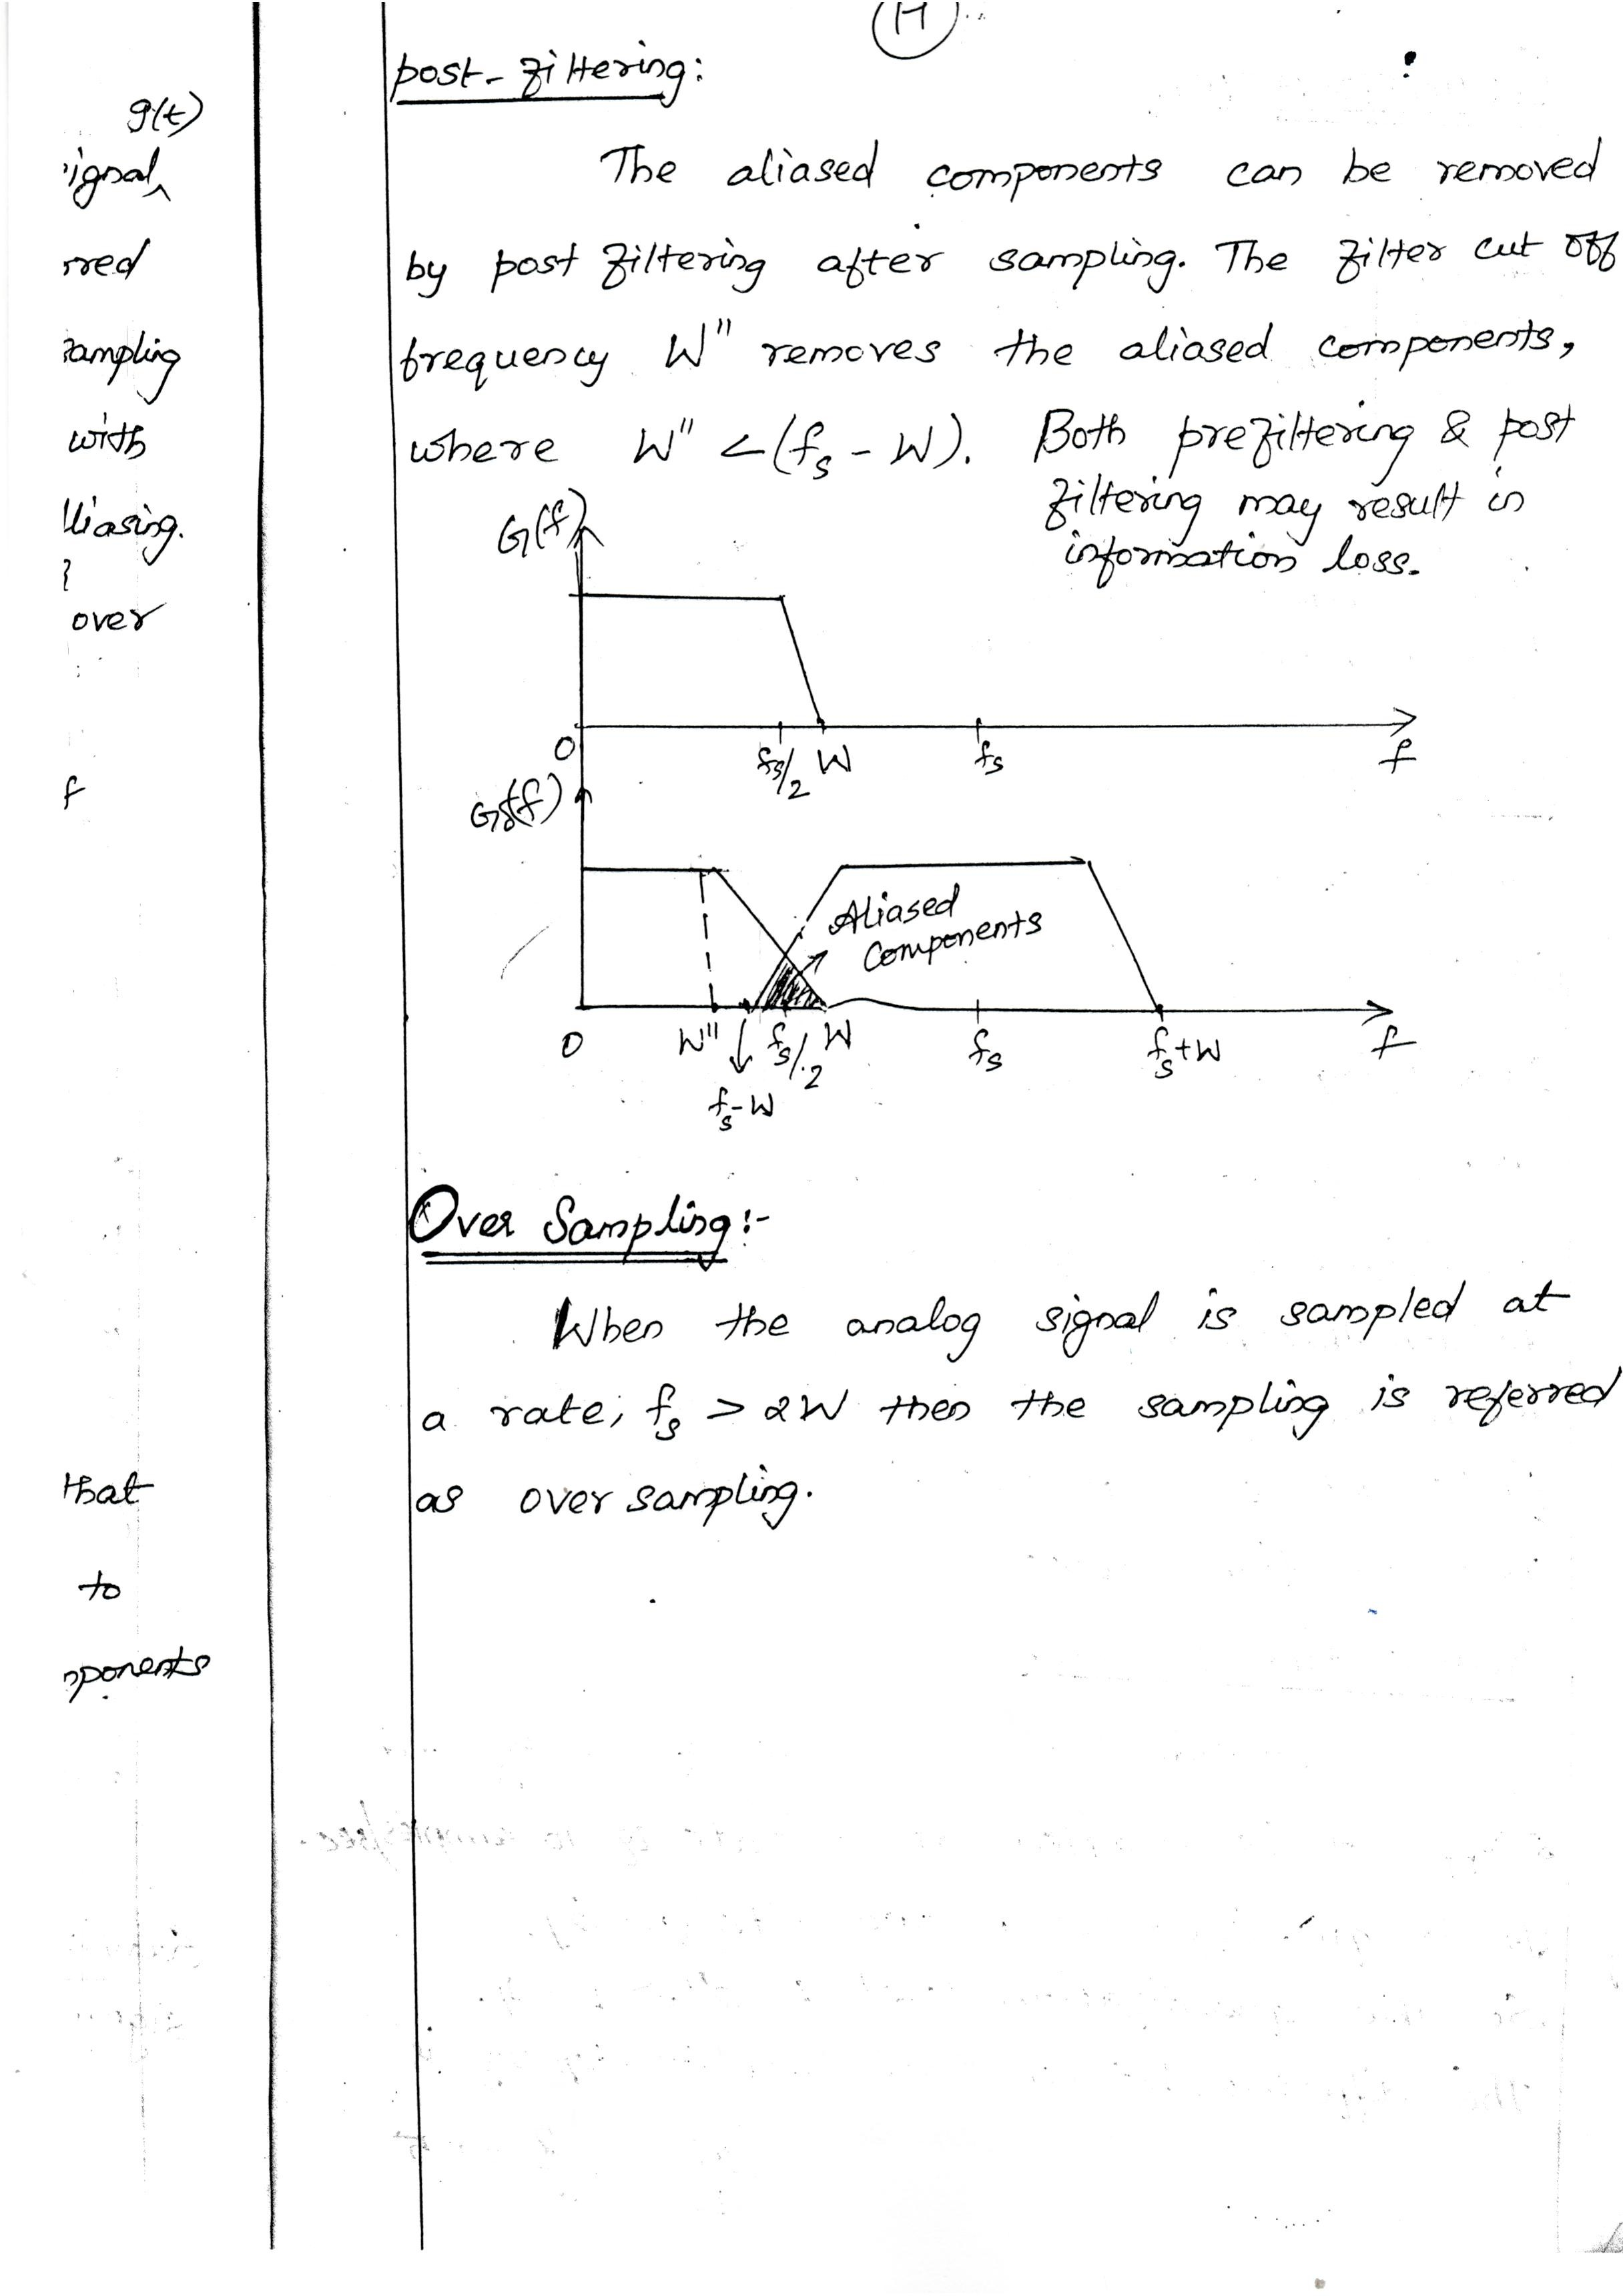 g(t)
ignal,
rred
sampling
with
lliasing.
over
f
that
to
ponents
post-filtering:
The aliased components can be removed
by post filtering after sampling. The filter cut off
frequency W" removes the aliased components,
where W" <(fs - W). Both prefiltering & post
filtering may result in
information loss.
G(f)
0 fs/2 W fs f
Gδ(f)
Aliased
Components
0 W" fs/2 W fs fs+W f
fs-W
Over Sampling:-
When the analog signal is sampled at
a rate, fs > 2W then the sampling is referred
as over sampling.